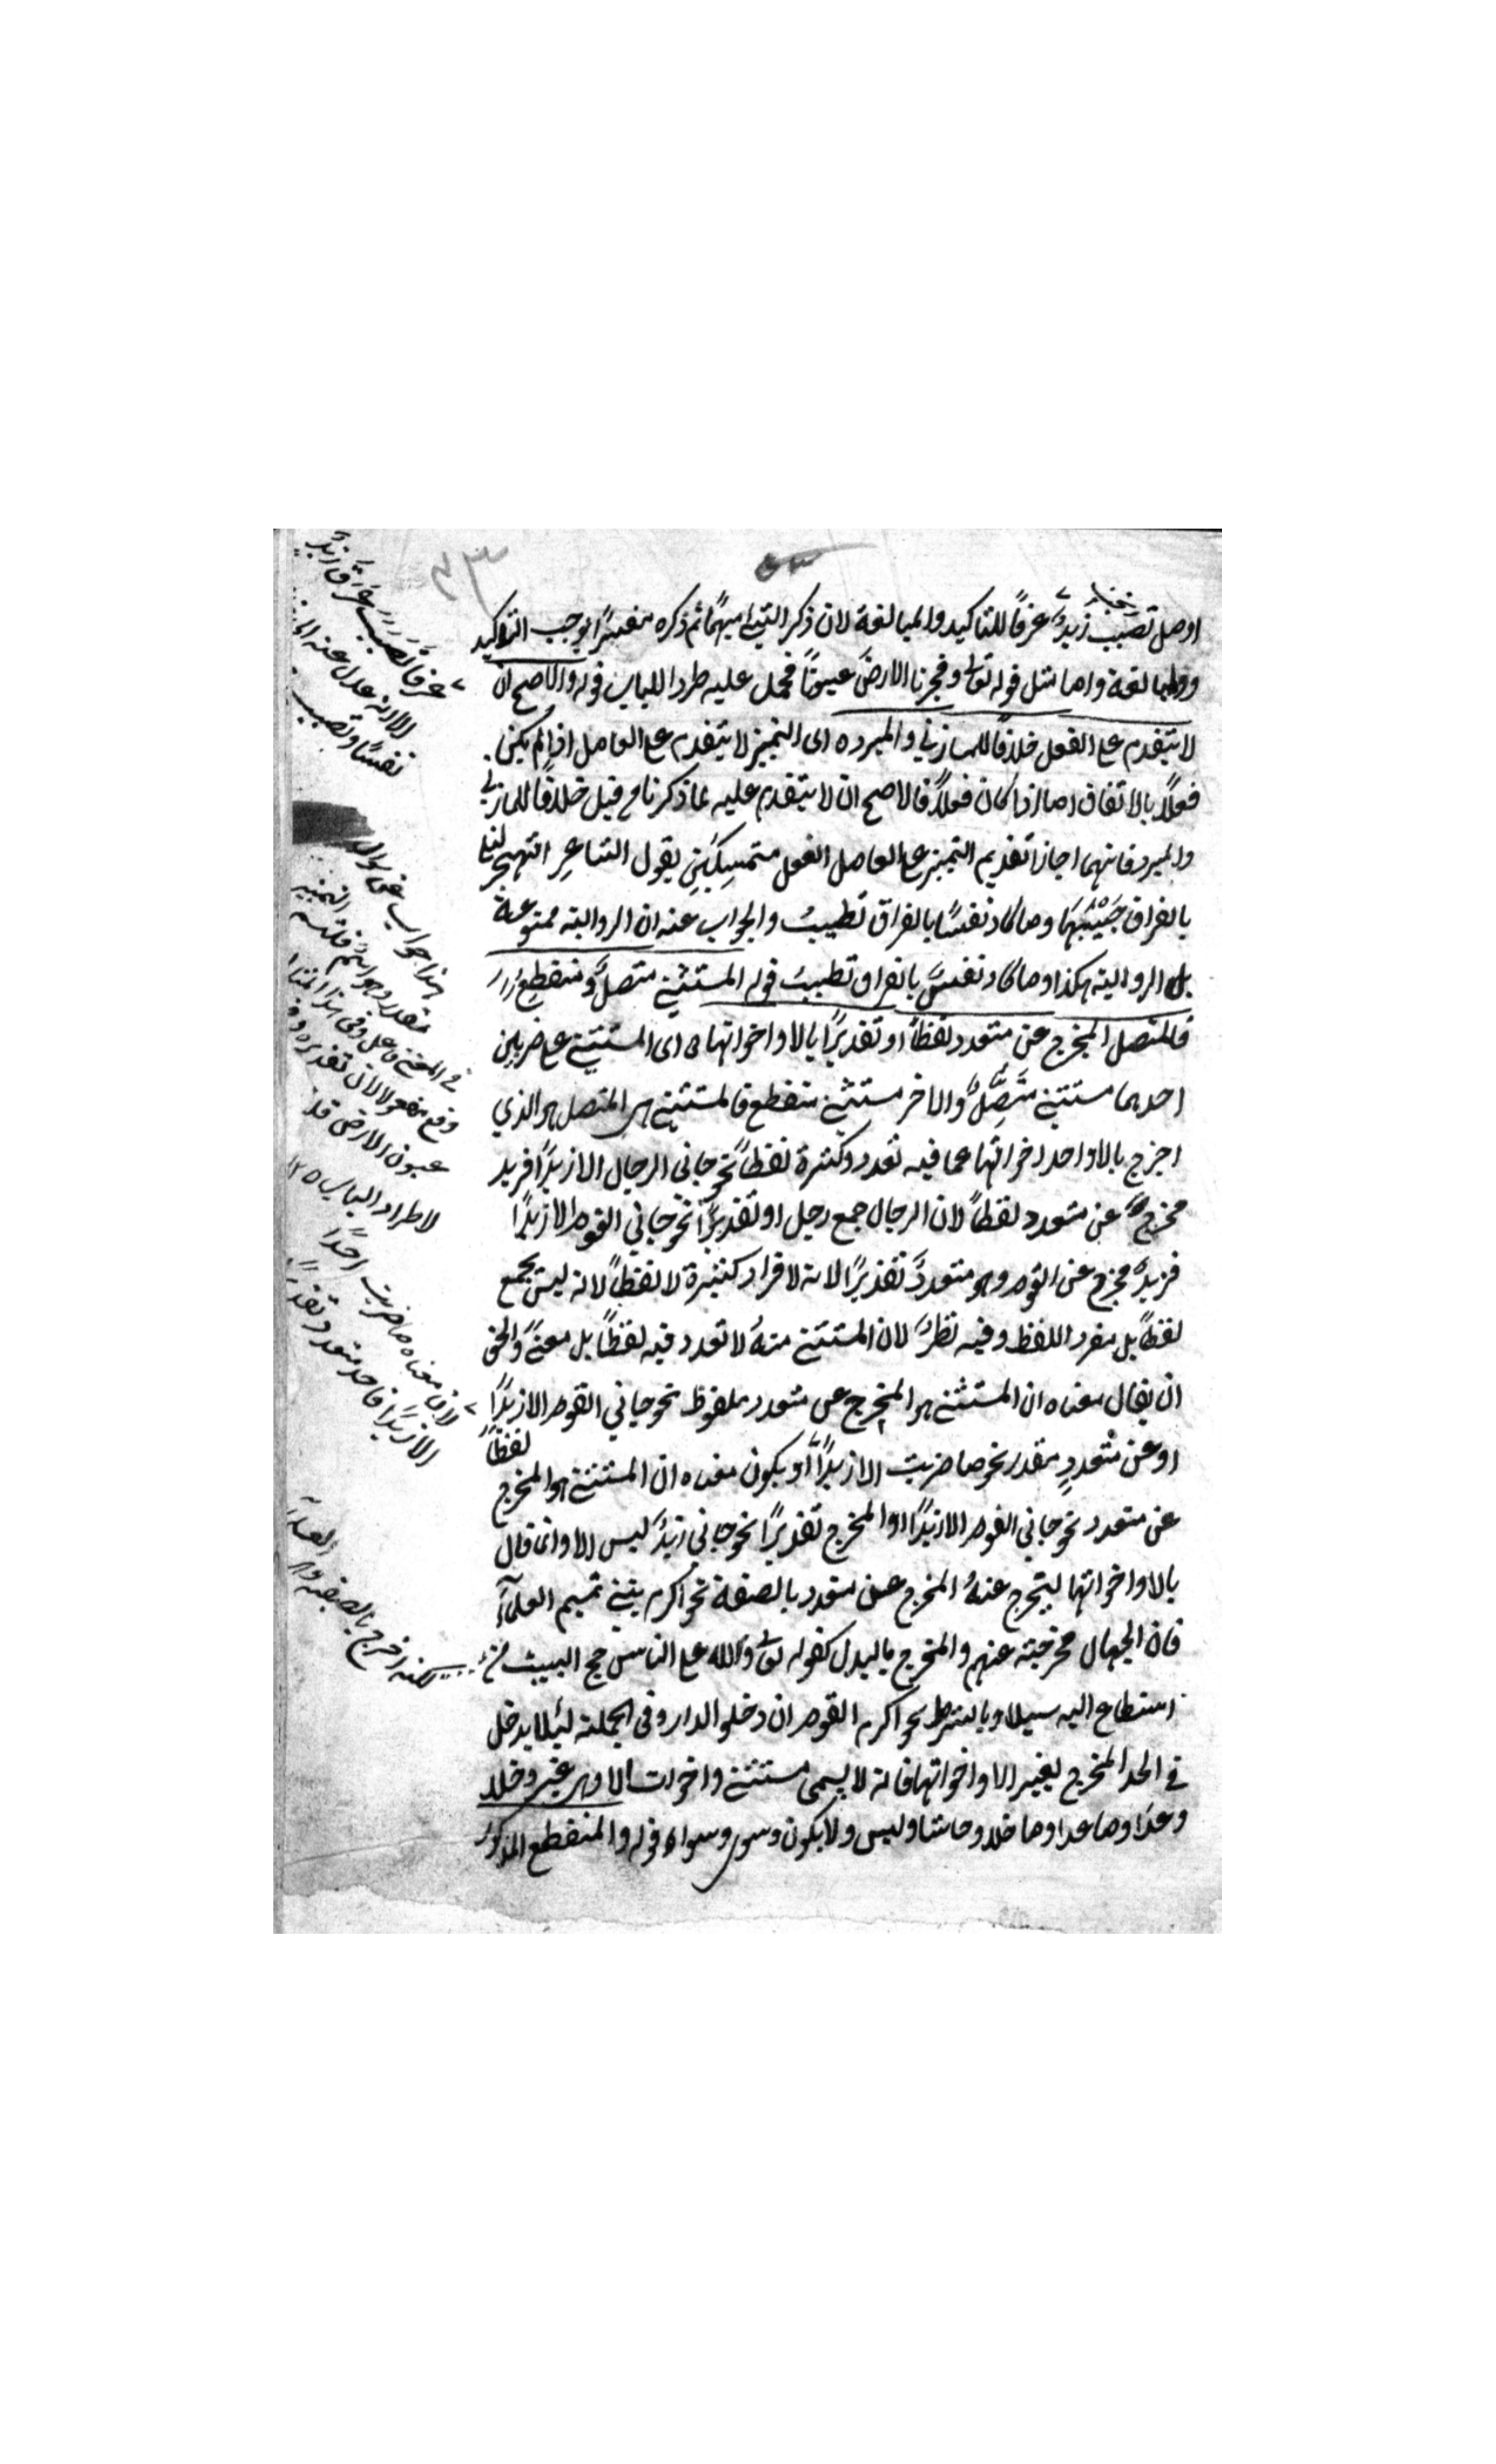 اوصل تصبب زيدٌ عرقاً للتاكيد والمبالغة لان ذكر الشئ مبهمًا ثم ذكره مفسرًا يوجب التاكيد
والمبالغة واما مثل قوله تعالى وفجرنا الارض عيونًا فحمل عليه طردا للباب قوله والاصح ان
لا يتقدم على الفعل خلافًا للمازني والمبرد ه اى التمييز لا يتقدم على العامل اذا لم يكن
فعلًا بالاتفاق اما اذا كان فعلًا فالاصح ان لا يتقدم عليه لما ذكرنا من قبل خلافًا للمازني
والمبرد فانهما اجازا تقديم التمييز على العامل الفعل متمسكين بقول الشاعر اتهجر ليلى
بالفراق حبيبها وما كاد نفسًا بالفراق تطيب والجواب عنه ان الرواية ممنوعة
بل الرواية هكذا وما كاد نفسى بالفراق تطيب قوله المستثنى متصل ومنقطع
فالمتصل المخرج عن متعدد لفظًا او تقديرًا بالا واخواتها ه اى المستثنى على ضربين
احدهما مستثنى متصلٌ والاخر مستثنى منقطع فالمستثنى المتصل هو الذي
اخرج بالا واحد اخواتها عما فيه تعدد وكثرة لفظًا نحو جاني الرجال الا زيدًا فزيد
مخرج عن متعدد لفظًا لان الرجال جمع رجل او تقديرًا نحو جاني القوم الا زيدًا
فزيد مخرج عن القوم وهو متعدد تقديرًا لانه لافراد كثيرة لا لفظًا لانه ليس بجمع
لفظًا بل مفرد اللفظ وفيه نظر لان المستثنى منه لا تعدد فيه لفظًا بل معنىً والحق
ان يقال معناه ان المستثنى هو المخرج عن متعدد ملفوظ نحو جاني القوم الا زيدًا
او عن متعددٍ مقدر نحو ما ضربت الا زيدًا او يكون معناه ان المستثنى هو المخرج لفظًا
عن متعدد نحو جاني القوم الا زيدًا او المخرج تقديرًا نحو جاني زيدٌ ليس الا وانما قال
بالا واخواتها ليخرج عنه المخرج عن متعدد بالصفة نحو اكرم بنى تميم العلماء
فان الجهال مخرجة عنهم والمخرج بالبدل كقوله تعالى ولله على الناس حج البيت من
استطاع اليه سبيلا وبالشرط نحو اكرم القوم ان دخلوا الدار وفى الجملة لئلا يدخل
فى الحد المخرج بغير الا واخواتها فانه لا يسمى مستثنى واخوات الا وهى غير وخلا
وعدا وما عدا وما خلا وحاشا وليس ولا يكون وسوى وسواء قوله والمنقطع المذكور
عرقًا تصبب عرق زيدٍ
الا انه عدل عنه
نفسًا وتصبب
هذا جواب عن سوال
مقدر وهو انكم قلتم التمييز
فى المعنى فاعل وفى هذا المثال
وقع مفعولا لان تقديره وفجرنا
عيون الارض
لاطراد الباب ١٢
لان معناه ما ضربت احدًا
الا زيدًا فاحد متعدد تقديرًا
اخرج بالصفة